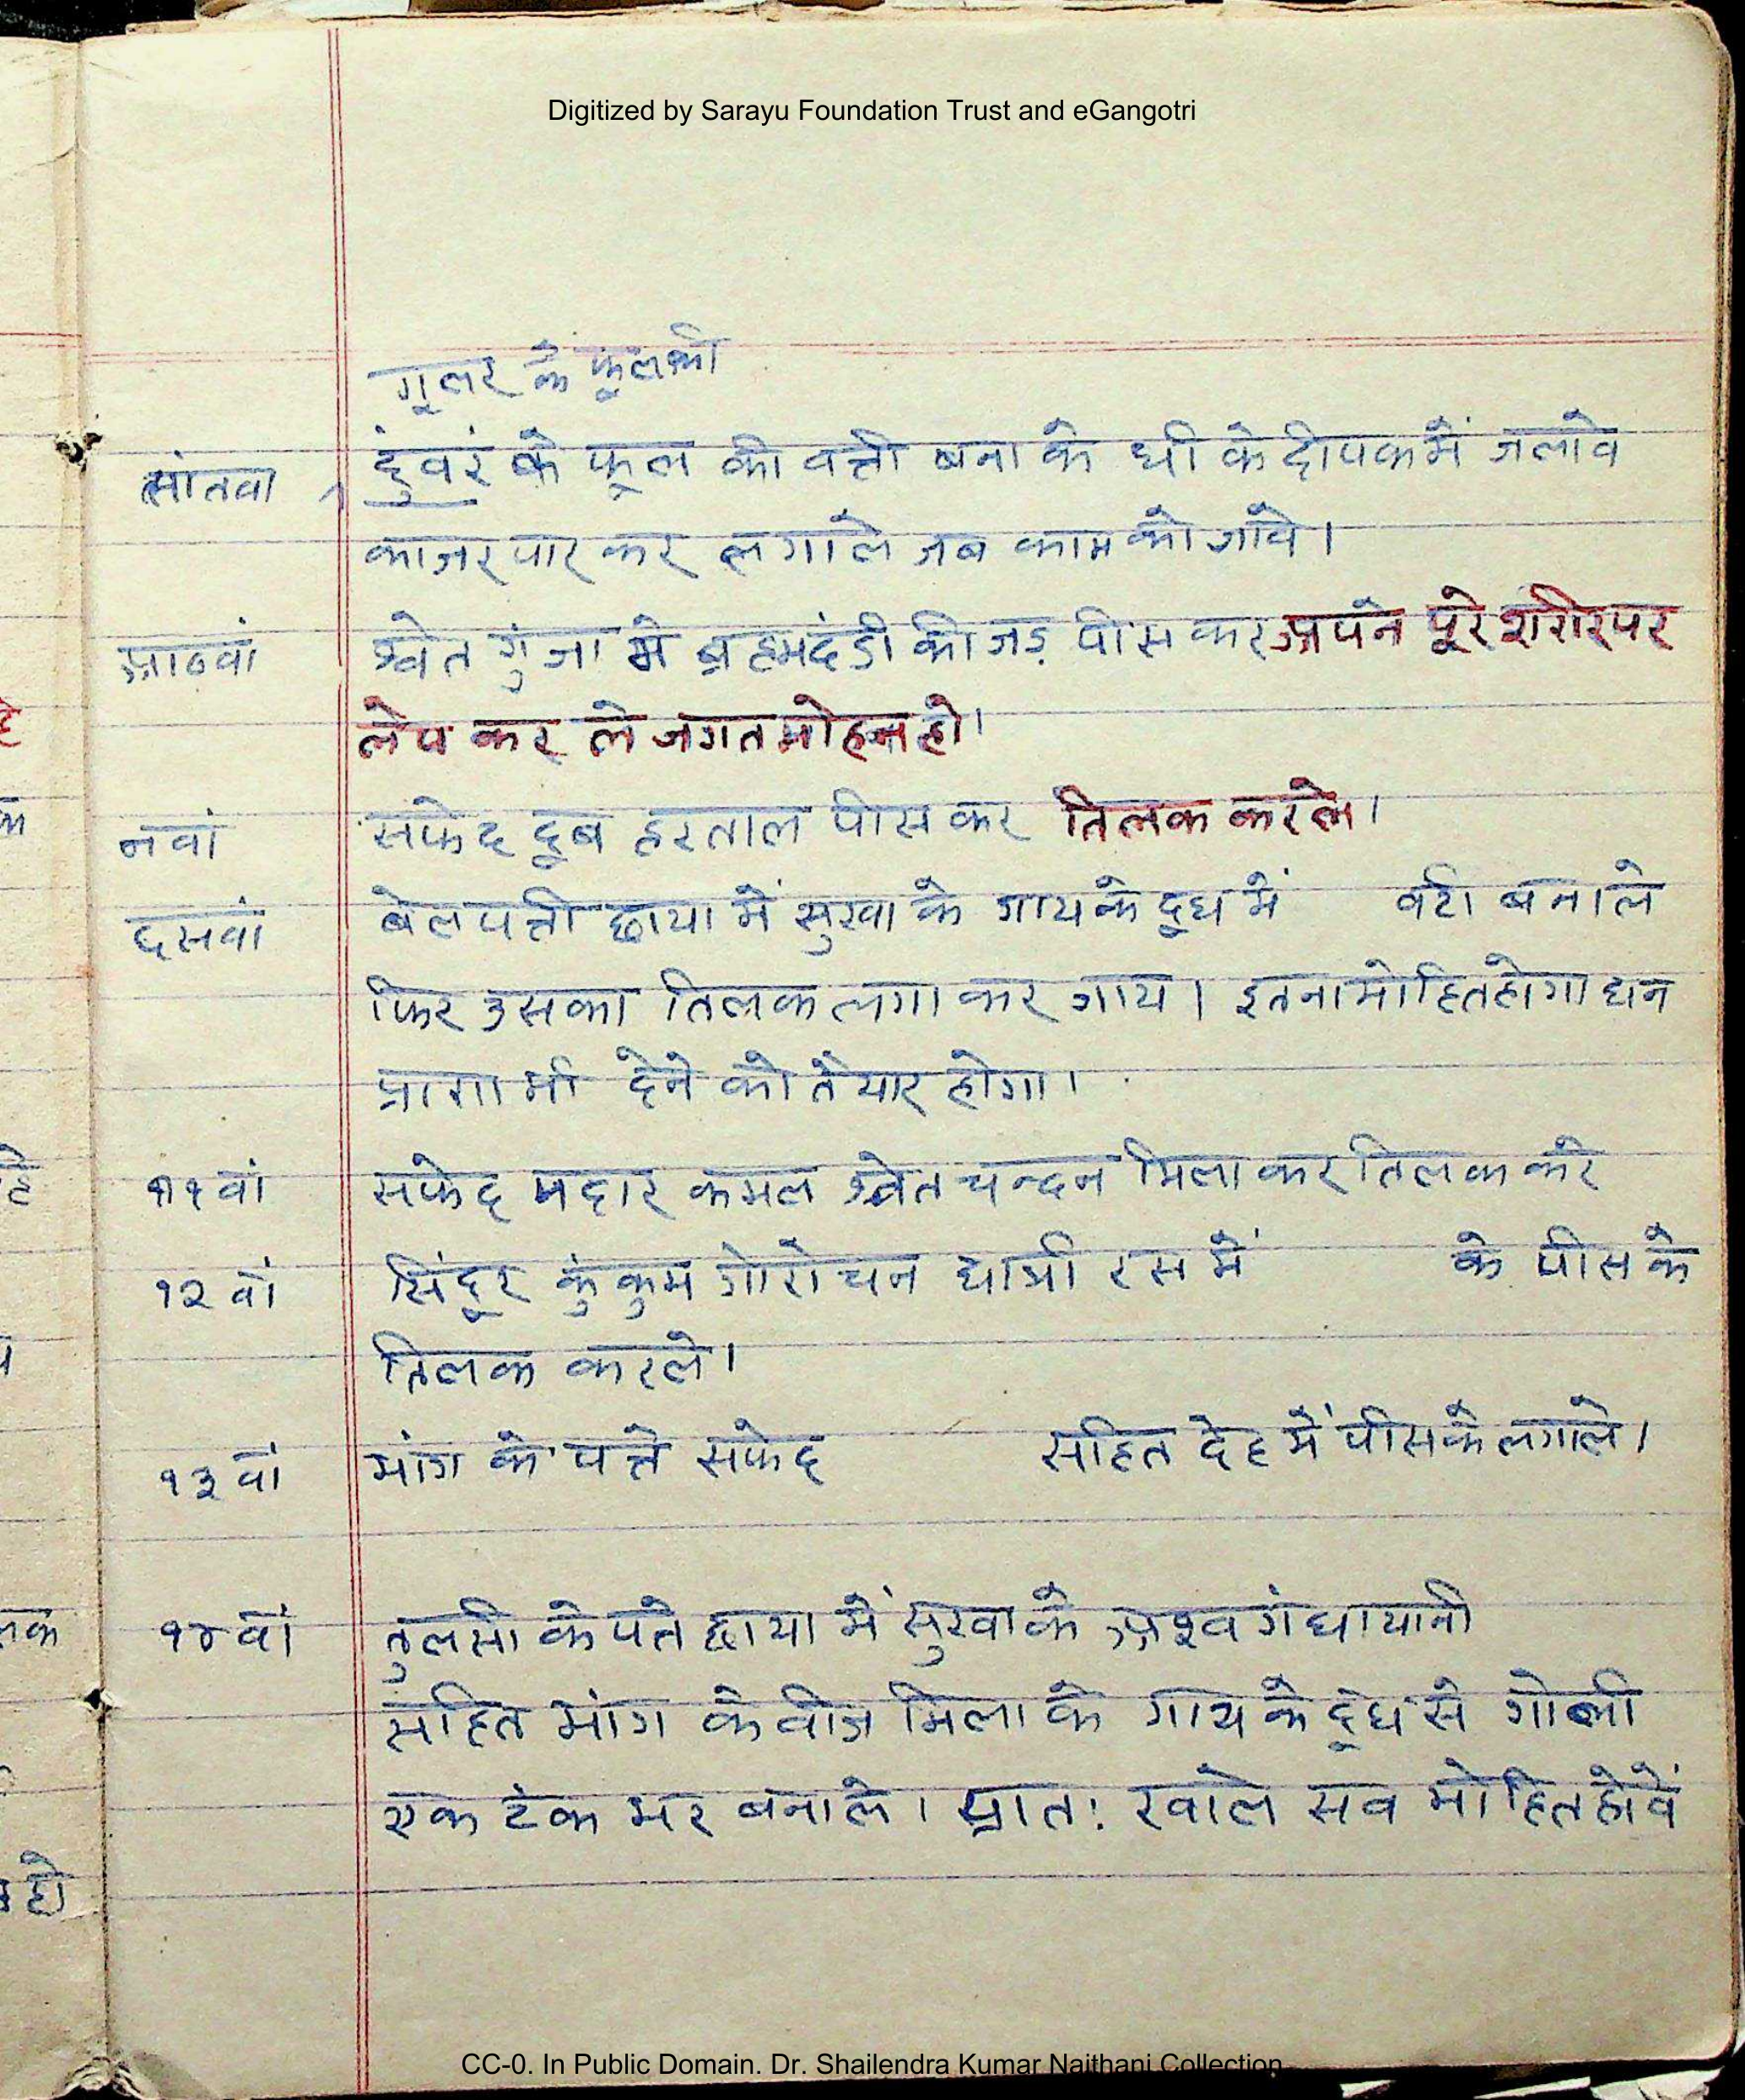 Digitized by Sarayu Foundation Trust and eGangotri
गूलर के फूल की
सांतवा दुंवरं के फूल की वत्ती बना के घी के दीपक में जलावे
काजर पार कर लगाले जब काम को जांवे।
आठवां श्वेत गुंजा मे ब्रह्मदंडी की जड़ पीस कर अपने पूरे शरीर पर
लेप कर ले जगत मोहन हो।
नवां सफेद दूब हरताल पीस कर तिलक करले।
दसवां बेल पत्ती छाया में सुखा के गाय के दूध में वटी बनाले
फिर उसका तिलक लगा कर जाय। इतना मोहित होगा धन
प्राण भी देने को तैयार होगा।
११वां सफेद मदार कमल श्वेत चन्दन मिला कर तिलक करे
१२वां सिंदूर कुंकुम गोरोचन धात्री रस में के पीस के
तिलक करले।
१३वां भांग के पत्ते सफेद सहित देह में पीस के लगाले।
१४वां तुलसी के पते छाया में सुखा के अश्वगंधा यानी
सहित भांग के वीज मिला के गाय के दूध से गोली
एक टंक भर बनाले। प्रातः खाले सव मोहित होवें
CC-0. In Public Domain. Dr. Shailendra Kumar Naithani Collection